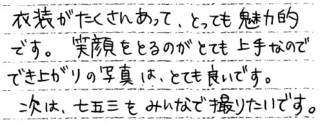 衣装がたくさんあって、とっても魅力的
です。笑顔をとるのがとても上手なので
でき上がりの写真は、とても良いです。
次は、七五三もみんなで撮りたいです。